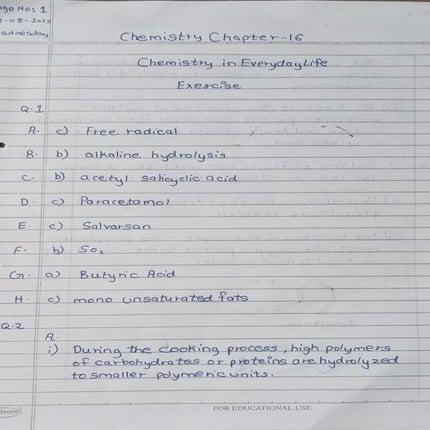 Page No: 1
-08-2015
Wednesday
Chemistry Chapter-16
Chemistry in Everyday Life
Exercise
Q.1
A. c) Free radical
B. b) alkaline hydrolysis
C. b) acetyl salicyclic acid
D. c) Paracetamol
E. c) Salvarsan
F. b) So₂
G. a) Butyric Acid
H. c) mono unsaturated fats
Q.2
A.
i) During the cooking process, high polymers
of carbohydrates or proteins are hydrolyzed
to smaller polymeric units.
FOR EDUCATIONAL USE